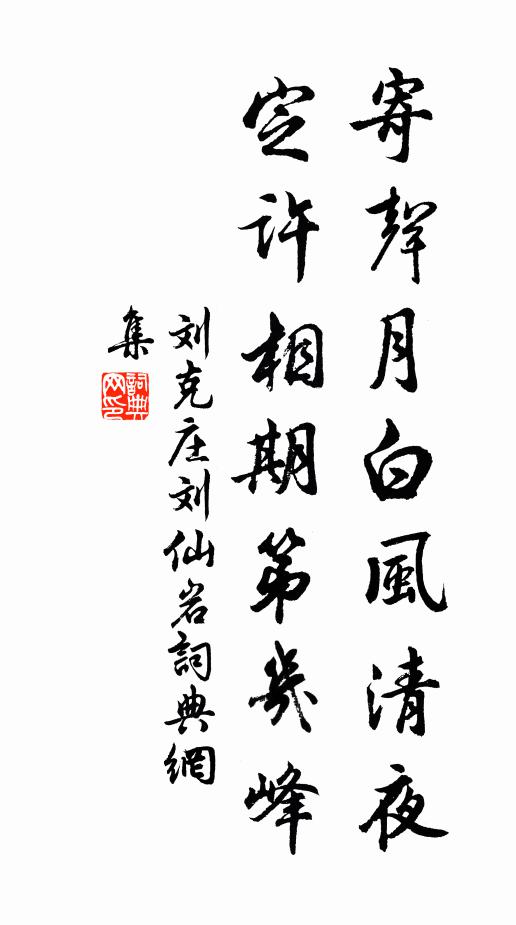 寄聲月白風清夜
定許相期第幾峰
刘克庄刘仙岩詞典網
集
詞典
网印